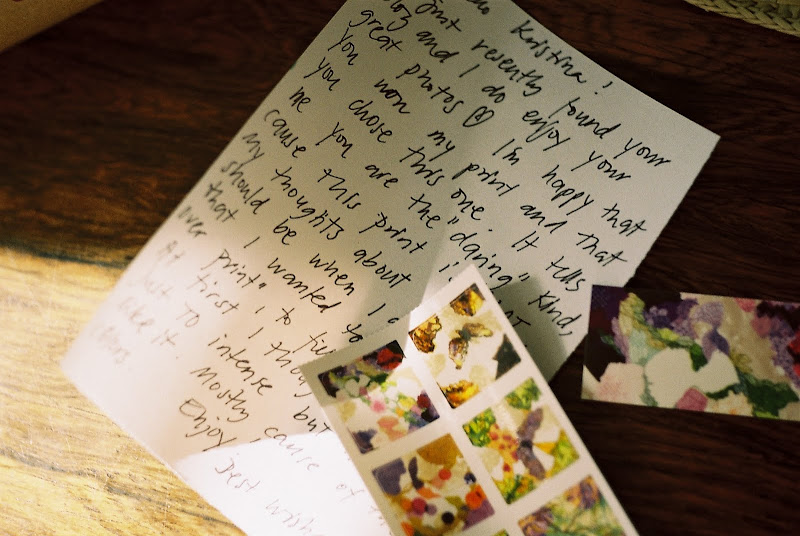 Kristina!
just resently found your
blog and I do enjoy your
great photos ♡ I'm happy that
you won my print and that
you chose this one. It tells
me you are the "daring" kind,
cause this print
my thoughts about
should be when I
that I wanted to
over print"
At first I
just to intense but
like it. Mostly cause of
colors
Enjoy!
Best